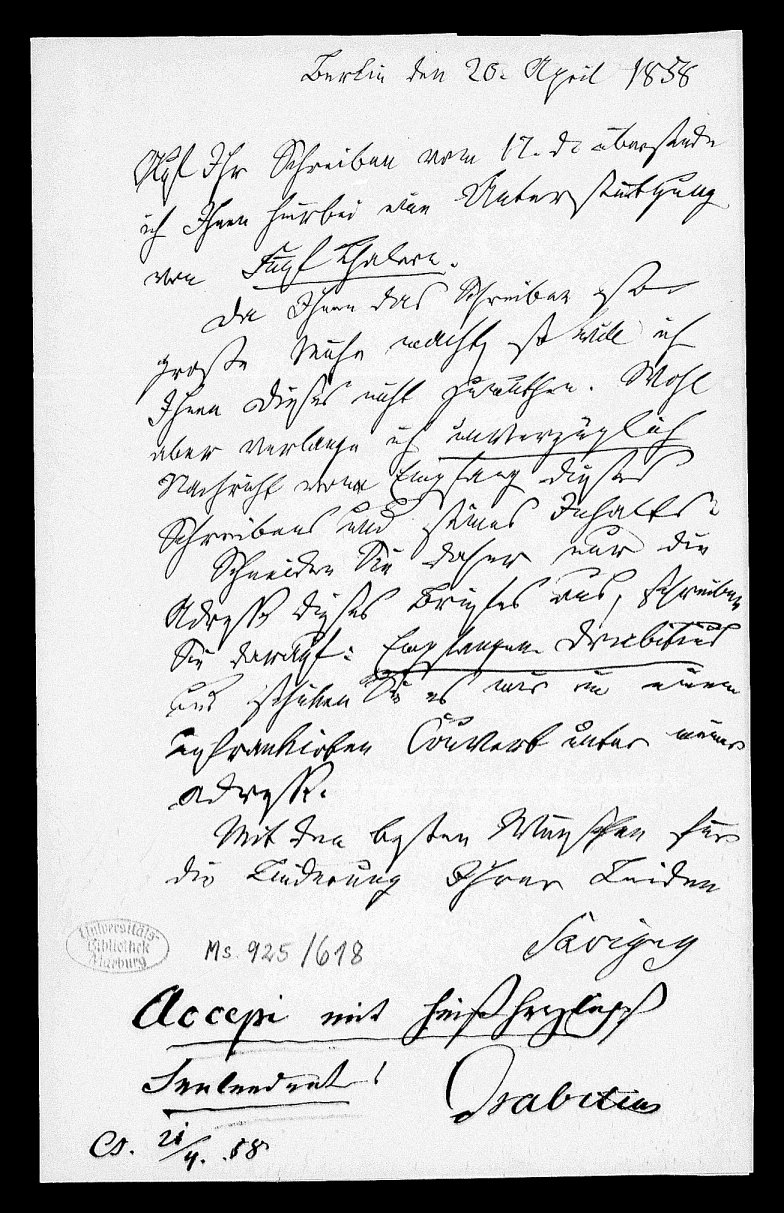 Berlin den 20. April 1858
Auf Ihr Schreiben vom 17. d. übersende
ich Ihnen hierbei eine Unterstützung
von Fünf Thalern.
Da Ihnen das Schreiben so
große Mühe macht, so will ich
Ihnen dieses nicht zumuthen. Wohl
aber verlange ich unverzüglich
Nachricht vom Empfang dieses
Schreibens und seines Inhalts.
Schneiden Sie daher nur die
Adresse dieses Briefes aus, schreiben
Sie darauf: Empfangen. Drabitius
und schicken Sie es mir in einem
unfrankirten Couvert unter meiner
Adresse.
Mit den besten Wünschen für
die Linderung Ihrer Leiden
Savigny
Universitäts-
Bibliothek
Marburg
Ms. 925/618
Accepi mit
Drabitius
21/4. 58